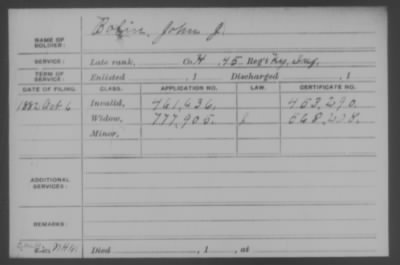 NAME OF SOLDIER: Bolin, John J.
SERVICE: Late rank, Co. H 45 Reg't Ky. Inf.
TERM OF SERVICE: Enlisted , 1 Discharged , 1
DATE OF FILING. CLASS. APPLICATION NO. LAW. CERTIFICATE NO.
1882 Oct 6 Invalid, 461,636. 453,290.
Widow, 777,905. 568,208.
Minor,
ADDITIONAL SERVICES:
REMARKS:
Died , 1 , at